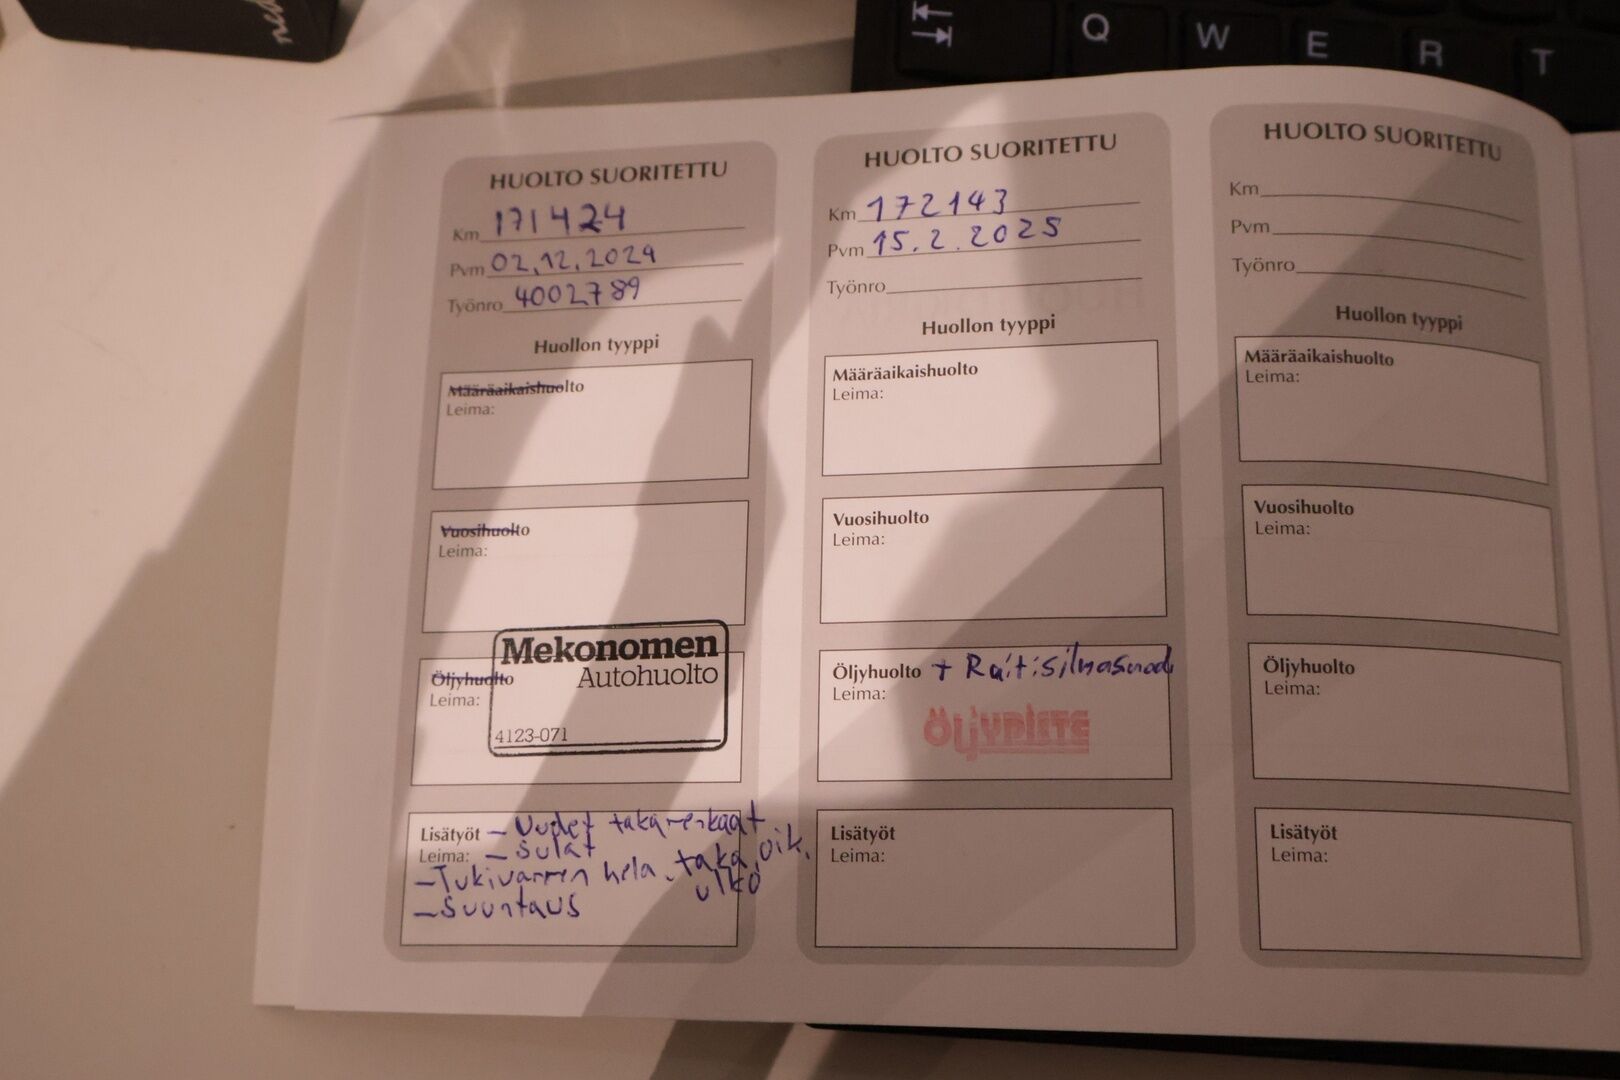 Q W E R T
HUOLTO SUORITETTU
Km 171424
Pvm 02.12.2024
Työnro 4002789
Huollon tyyppi
Määräaikaishuolto
Leima:
Vuosihuolto
Leima:
Öljyhuolto
Leima:
Mekonomen
Autohuolto
4123-071
Lisätyöt - Uudet takarenkaat
Leima: - Sulat
- Tukivarren hela taka, oik. ulko
- Suuntaus
HUOLTO SUORITETTU
Km 172143
Pvm 15.2.2025
Työnro
Huollon tyyppi
Määräaikaishuolto
Leima:
Vuosihuolto
Leima:
Öljyhuolto + Raitisilmasuod
Leima:
ÖLJYPISTE
Lisätyöt
Leima:
HUOLTO SUORITETTU
Km
Pvm
Työnro
Huollon tyyppi
Määräaikaishuolto
Leima:
Vuosihuolto
Leima:
Öljyhuolto
Leima:
Lisätyöt
Leima: